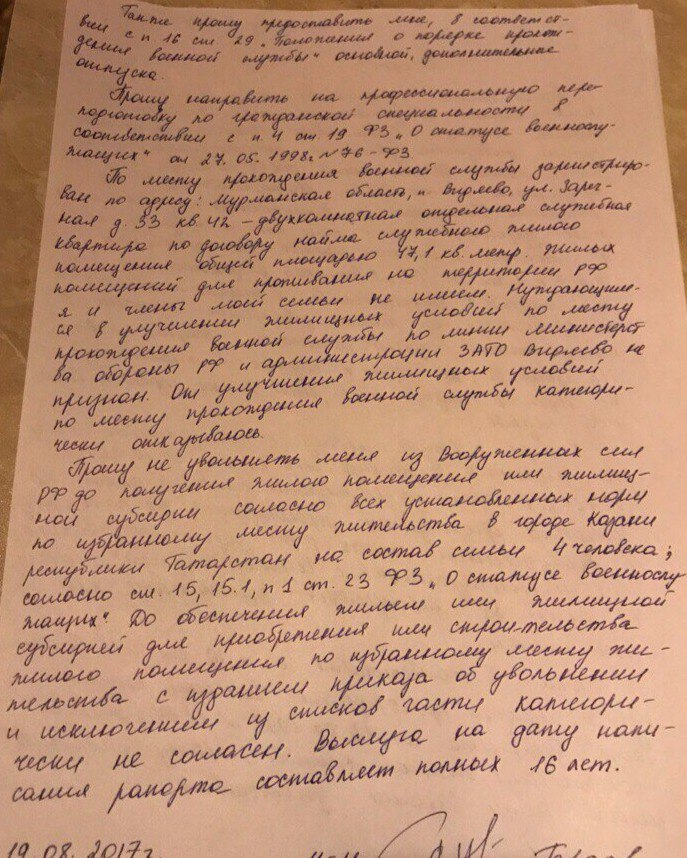 Также прошу предоставить мне, в соответст-
вии с п 16 ст. 29 „Положения о порядке прохо-
ждения военной службы" основной, дополнительные
отпуска.
Прошу направить на профессиональную пере-
подготовку по гражданской специальности в
соответствии с п 4 ст 19 ФЗ „О статусе военнослу-
жащих" от 27.05.1998г. №76-ФЗ
По месту прохождения военной службы зарегистриро-
ван по адресу: Мурманская область, п. Видяево, ул. Зареч-
ная д. 33 кв. 42 – двухкомнатная отдельная служебная
квартира по договору найма служебного жилого
помещения общей площадью 47,1 кв. метр. Жилых
помещений для проживания на территории РФ
я и члены моей семьи не имеем. Нуждающим-
ся в улучшении жилищных условий по месту
прохождения военной службы по линии Министерст
ва обороны РФ и администрации ЗАТО Видяево не
признан. От улучшения жилищных условий
по месту прохождения военной службы категори-
чески отказываюсь.
Прошу не увольнять меня из Вооруженных сил
РФ до получения жилого помещения или жилищ-
ной субсидии согласно всех установленных норм
по избранному месту жительства в городе Казани
республики Татарстан на состав семьи 4 человека;
согласно ст. 15, 15.1, п 1 ст. 23 ФЗ „О статусе военнослу
жащих". До обеспечения жильем или жилищной
субсидией для приобретения или строительства
жилого помещения по избранному месту жи-
тельства с изданием приказа об увольнении
и исключением из списков части категори-
чески не согласен. Выслуга на дату напи-
сания рапорта составляет полных 16 лет.
19.08.2017г.